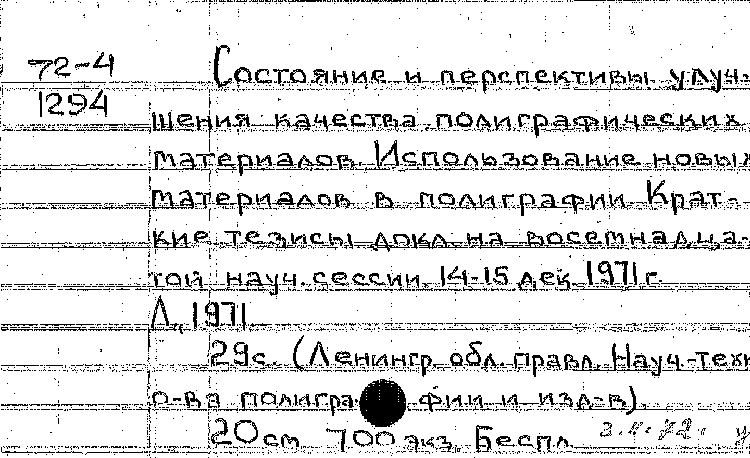 72-4
1294
Состояние и перспективы улуч-
шения качества полиграфических
материалов. Использование новых
материалов в полиграфии. Крат-
кие тезисы докл. на восемнадца-
той науч. сессии. 14-15 дек. 1971 г.
Л., 1971.
29 с. (Ленингр. обл. правл. Науч.-техн.
о-ва полигра фии и изд-в).
20 см. 700 экз. Беспл.